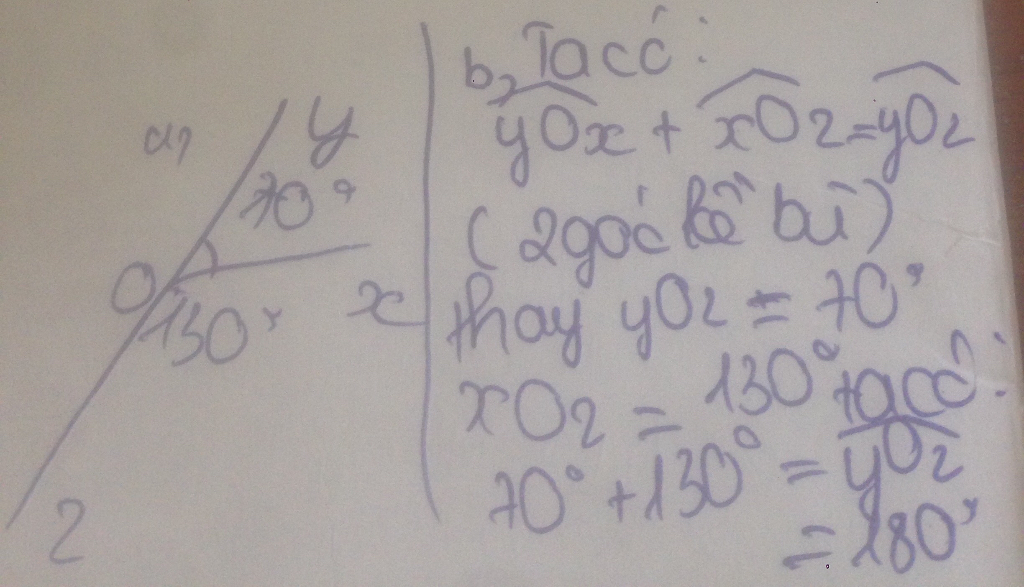 a,
y
70°
O
130°
x
z
b, Ta có:
yOx + xOz = yOz
(2 góc kề bù)
thay yOz = 70°
xOz = 130° ta có:
70° + 130° = yOz
= 180°